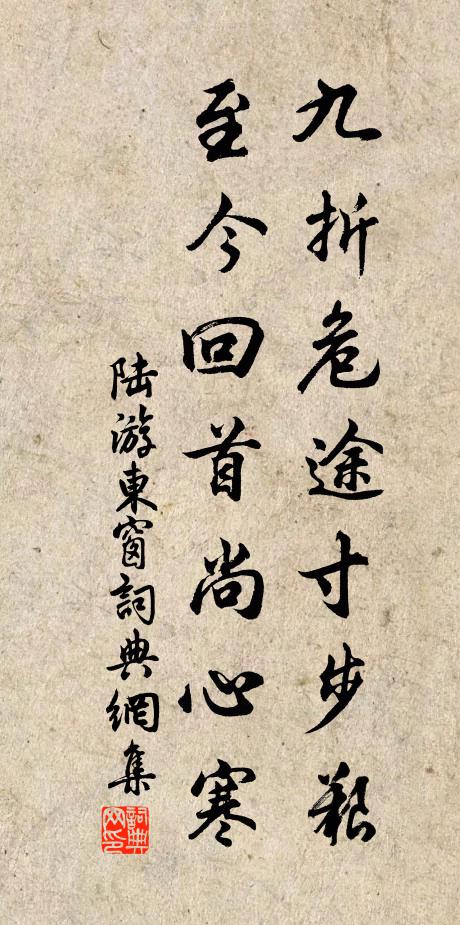 九折危途寸步艱
至今回首尚心寒
陆游東窗詞典網集
詞典网印